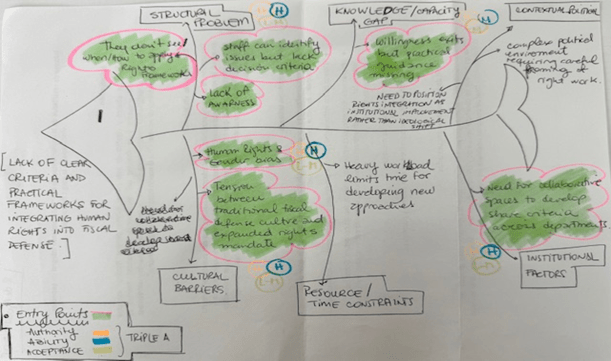 STRUCTURAL
PROBLEM
KNOWLEDGE/CAPACITY
GAPS
CONTEXTUAL POLITICAL
They don't see
when/how to apply
rights
frameworks
Staff can identify
issues but lack
decision criteria
LACK OF
AWARNESS
H
L-M
Willingness exists
but practical
guidance
missing
H
L-M
NEED TO POSITION
RIGHTS INTEGRATION AS
INSTITUTIONAL IMPROVEMENT
RATHER THAN IDEOLOGICAL
SHIFT
complex political
enviroment
requiring careful
framing of
right work.
[LACK OF CLEAR
CRITERIA AND
PRACTICAL
FRAMEWORKS FOR
INTEGRATING HUMAN
RIGHTS INTO FISCAL
DEFENSE.]
Human Rights &
Gender bias
H
L-M
Tension
between
traditional fiscal
defense culture and
expanded rights
mandate
H
L-M
Heavy workload
limits time for
developing new
approaches
Need for collaborative
spaces to develop
share criteria
across departments
H
L-M
CULTURAL
BARRIERS
RESOURCE/
TIME CONSTRAINTS
INSTITUTIONAL
FACTORS
Entry Points
Authority
Ability
ACCEPTANCE
TRIPLE A